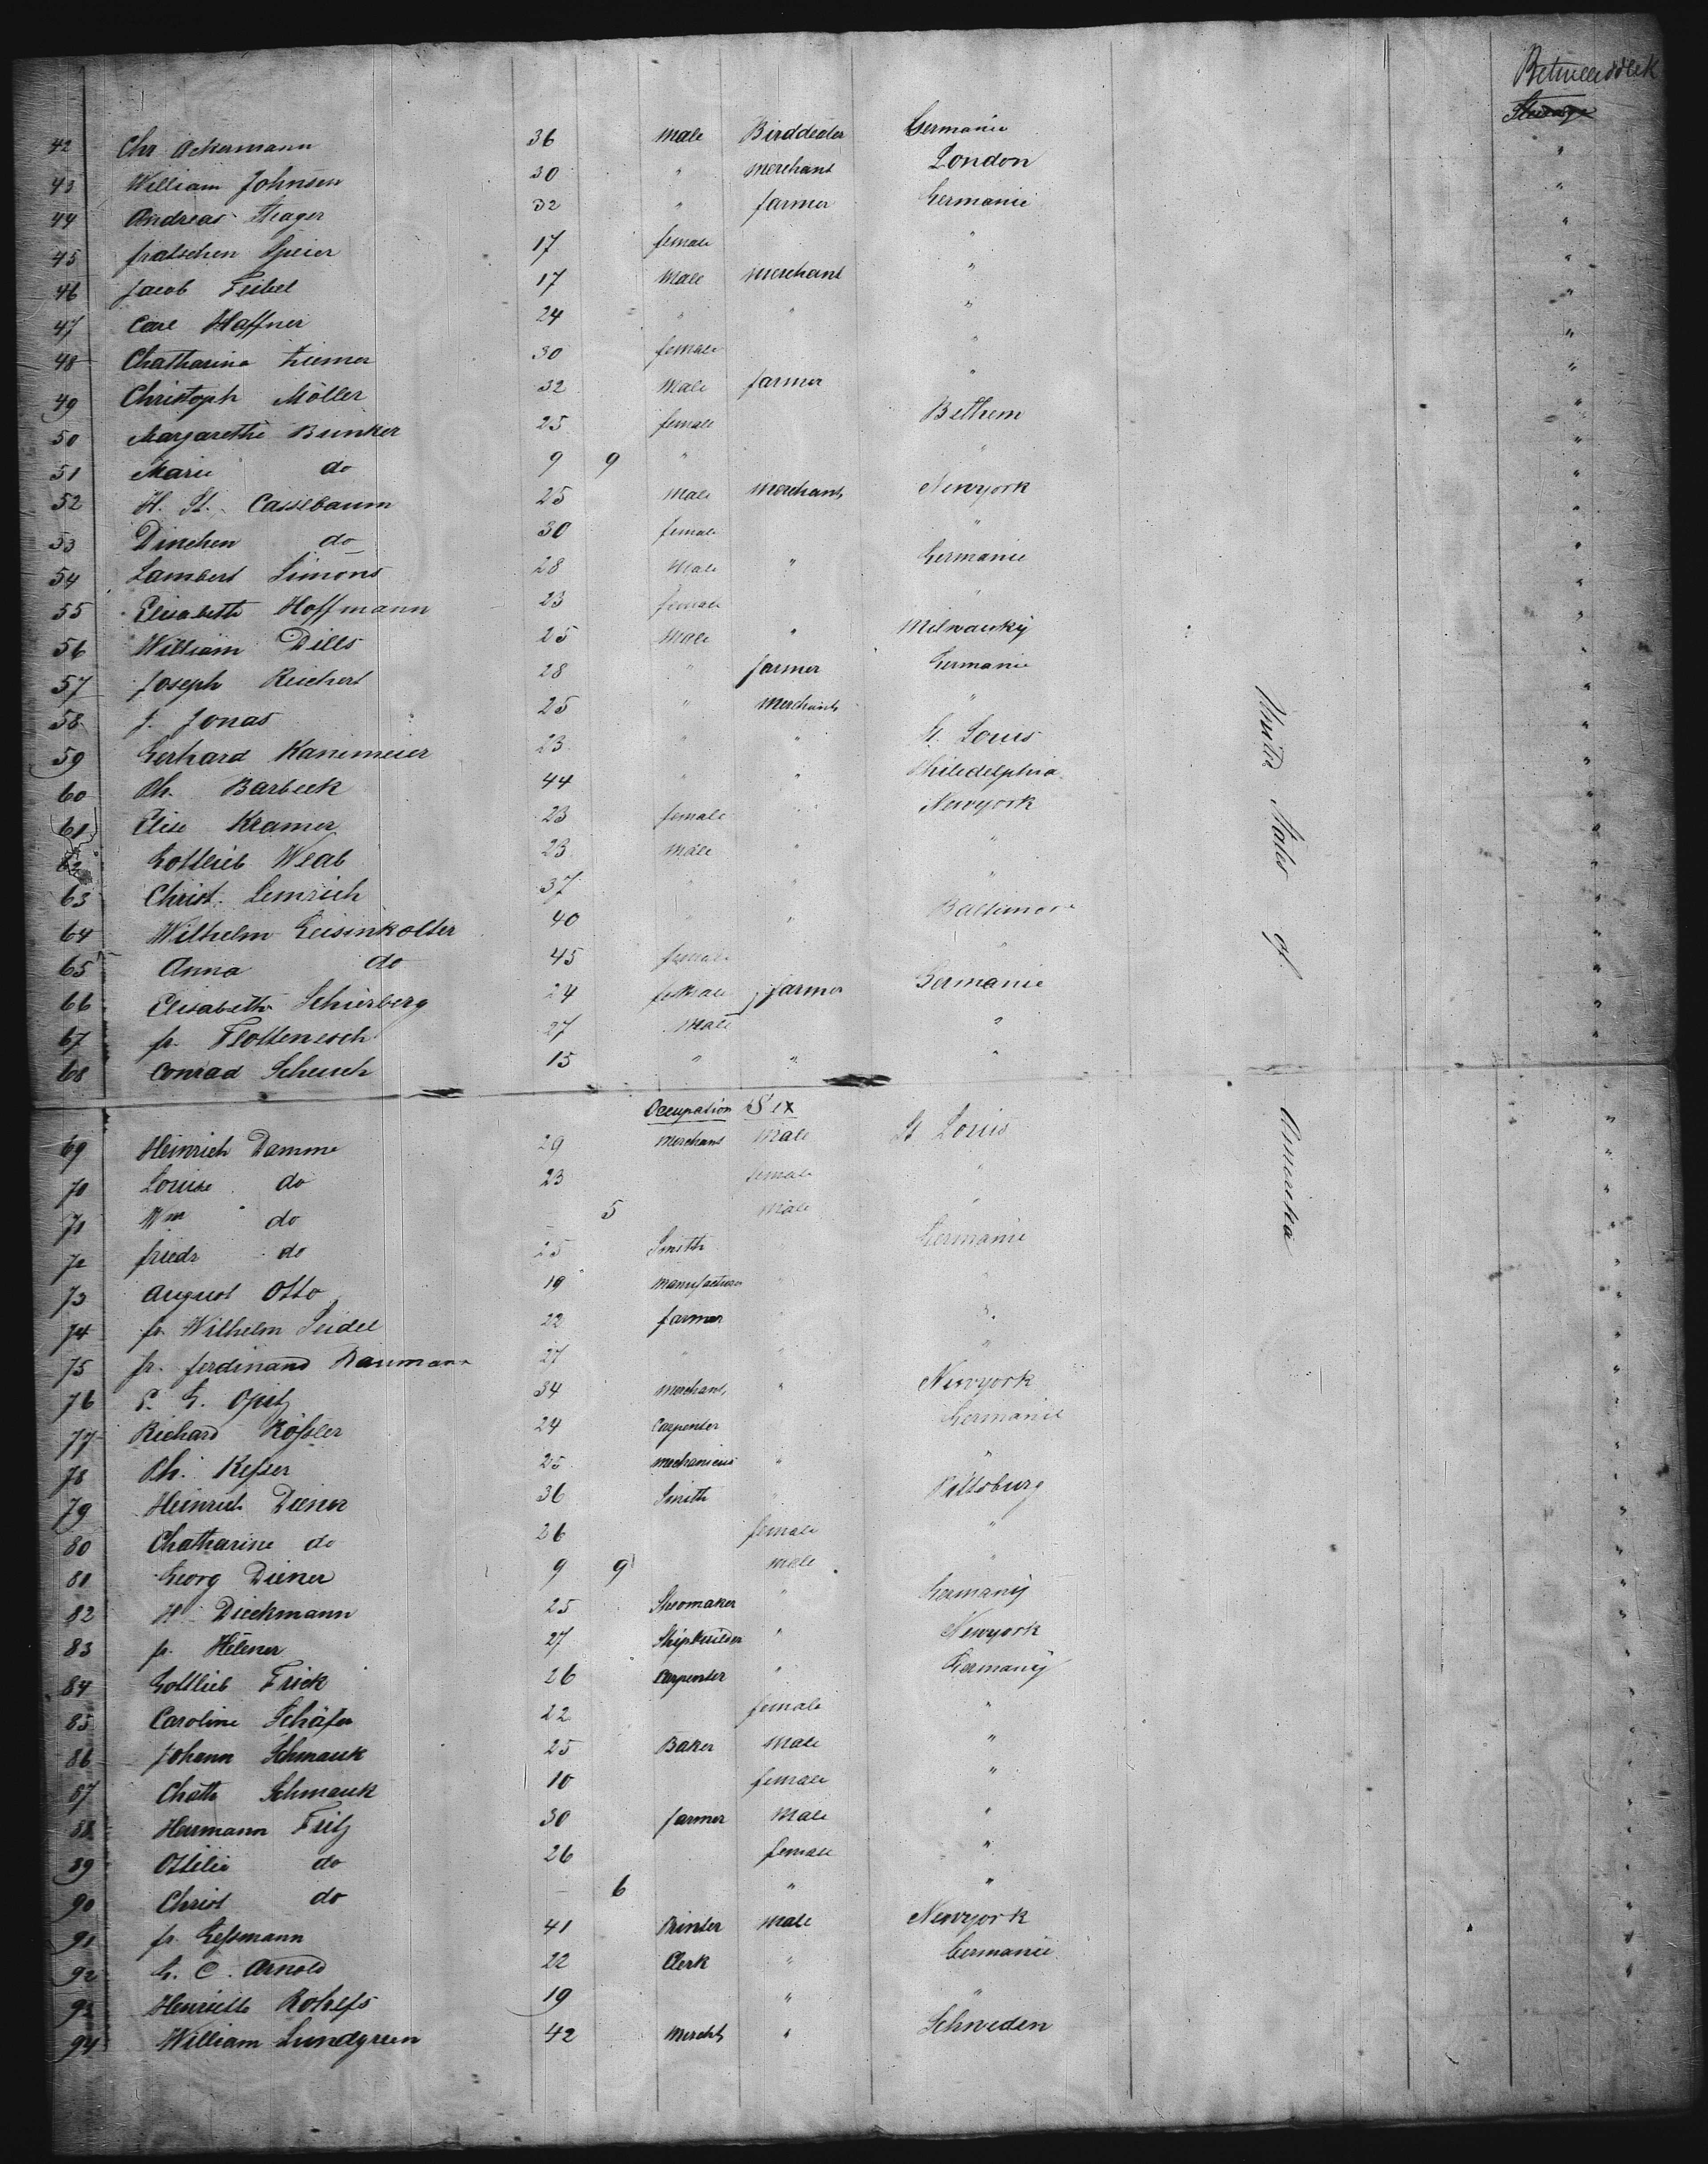 Betweeddek
Steerage
42 Chr Ackermann 36 male Birddealer Germanie "
43 William Johnson 30 " merchant London "
44 Andreas 32 " farmer Germanie "
45 Speier 17 female " "
46 Jacob Feibel 17 Male merchant " "
47 Carl Haffner 24 " " " "
48 Chatharina 30 female " "
49 Christoph Möller 32 Male farmer " "
50 Margarethe Bunker 25 female Bethem "
51 Marie do 9 9 " " "
52 H. St. Casselbaum 25 Male Merchant Newyork "
53 Dinchen do 30 female " "
54 Lambert Simons 28 Male " Germanie "
55 Elisabeth Hoffmann 23 female " "
56 William Dills 25 Male " Milwauky "
57 Joseph Reichert 28 " farmer Germanie "
58 J. Jonas 25 " Merchant " "
59 Gerhard Kanemeier 23 " " St. Louis "
60 Ph. Barbeck 44 " " Philedelphia "
61 Elise Kramer 23 female Newyork "
62 Gottlieb Weab 23 Male " " "
63 Christ. Lemrich 37 " " " "
64 Wilhelm Geisinkolter 40 " " Baltimore "
65 Anna do 45 female " "
66 Elisabeth Schierberg 24 female farmer Germanie "
67 fr. Flottenesch 27 Male " "
68 Conrad Scheuch 15 " " "
United States of America
Occupation Sex
69 Heinrich Damme 29 Merchant Male St Louis "
70 Louise do 23 female " "
71 Wm do 5 Male " "
72 friedr do 25 Smith " Germanie "
73 August Otto 19 manufacturer " " "
74 fr. Wilhelm Seidel 22 farmer " " "
75 fr. ferdinand Baumann 27 " " " "
76 G. Opitz 34 Merchant " Newyork "
77 Richard Rößler 24 Carpenter " Germanie "
78 Ph. Keßler 25 mechanicus " " "
79 Heinrich Diener 36 Smith " Pittsburg "
80 Chatharine do 26 female " "
81 Georg Diener 9 9 male " "
82 H. Dieckmann 25 Shoomaker " Germany "
83 fr. Hilener 27 Shipbuilder " Newyork "
84 Gottlieb Frick 26 Carpenter " Germany "
85 Caroline Schäfer 22 female " "
86 Johann Schmauk 25 Baker Male " "
87 Chath Schmauk 10 female " "
88 Hermann Fritz 30 farmer Male " "
89 Ottilie do 26 female " "
90 Christ do 6 " " "
91 fr. Geßmann 41 Printer Male Newyork "
92 G. C. Arnold 22 Clerk " Germanie "
93 Henriette Rohlfs 19 " "
94 William Lundgreen 42 Mercht " Schweden